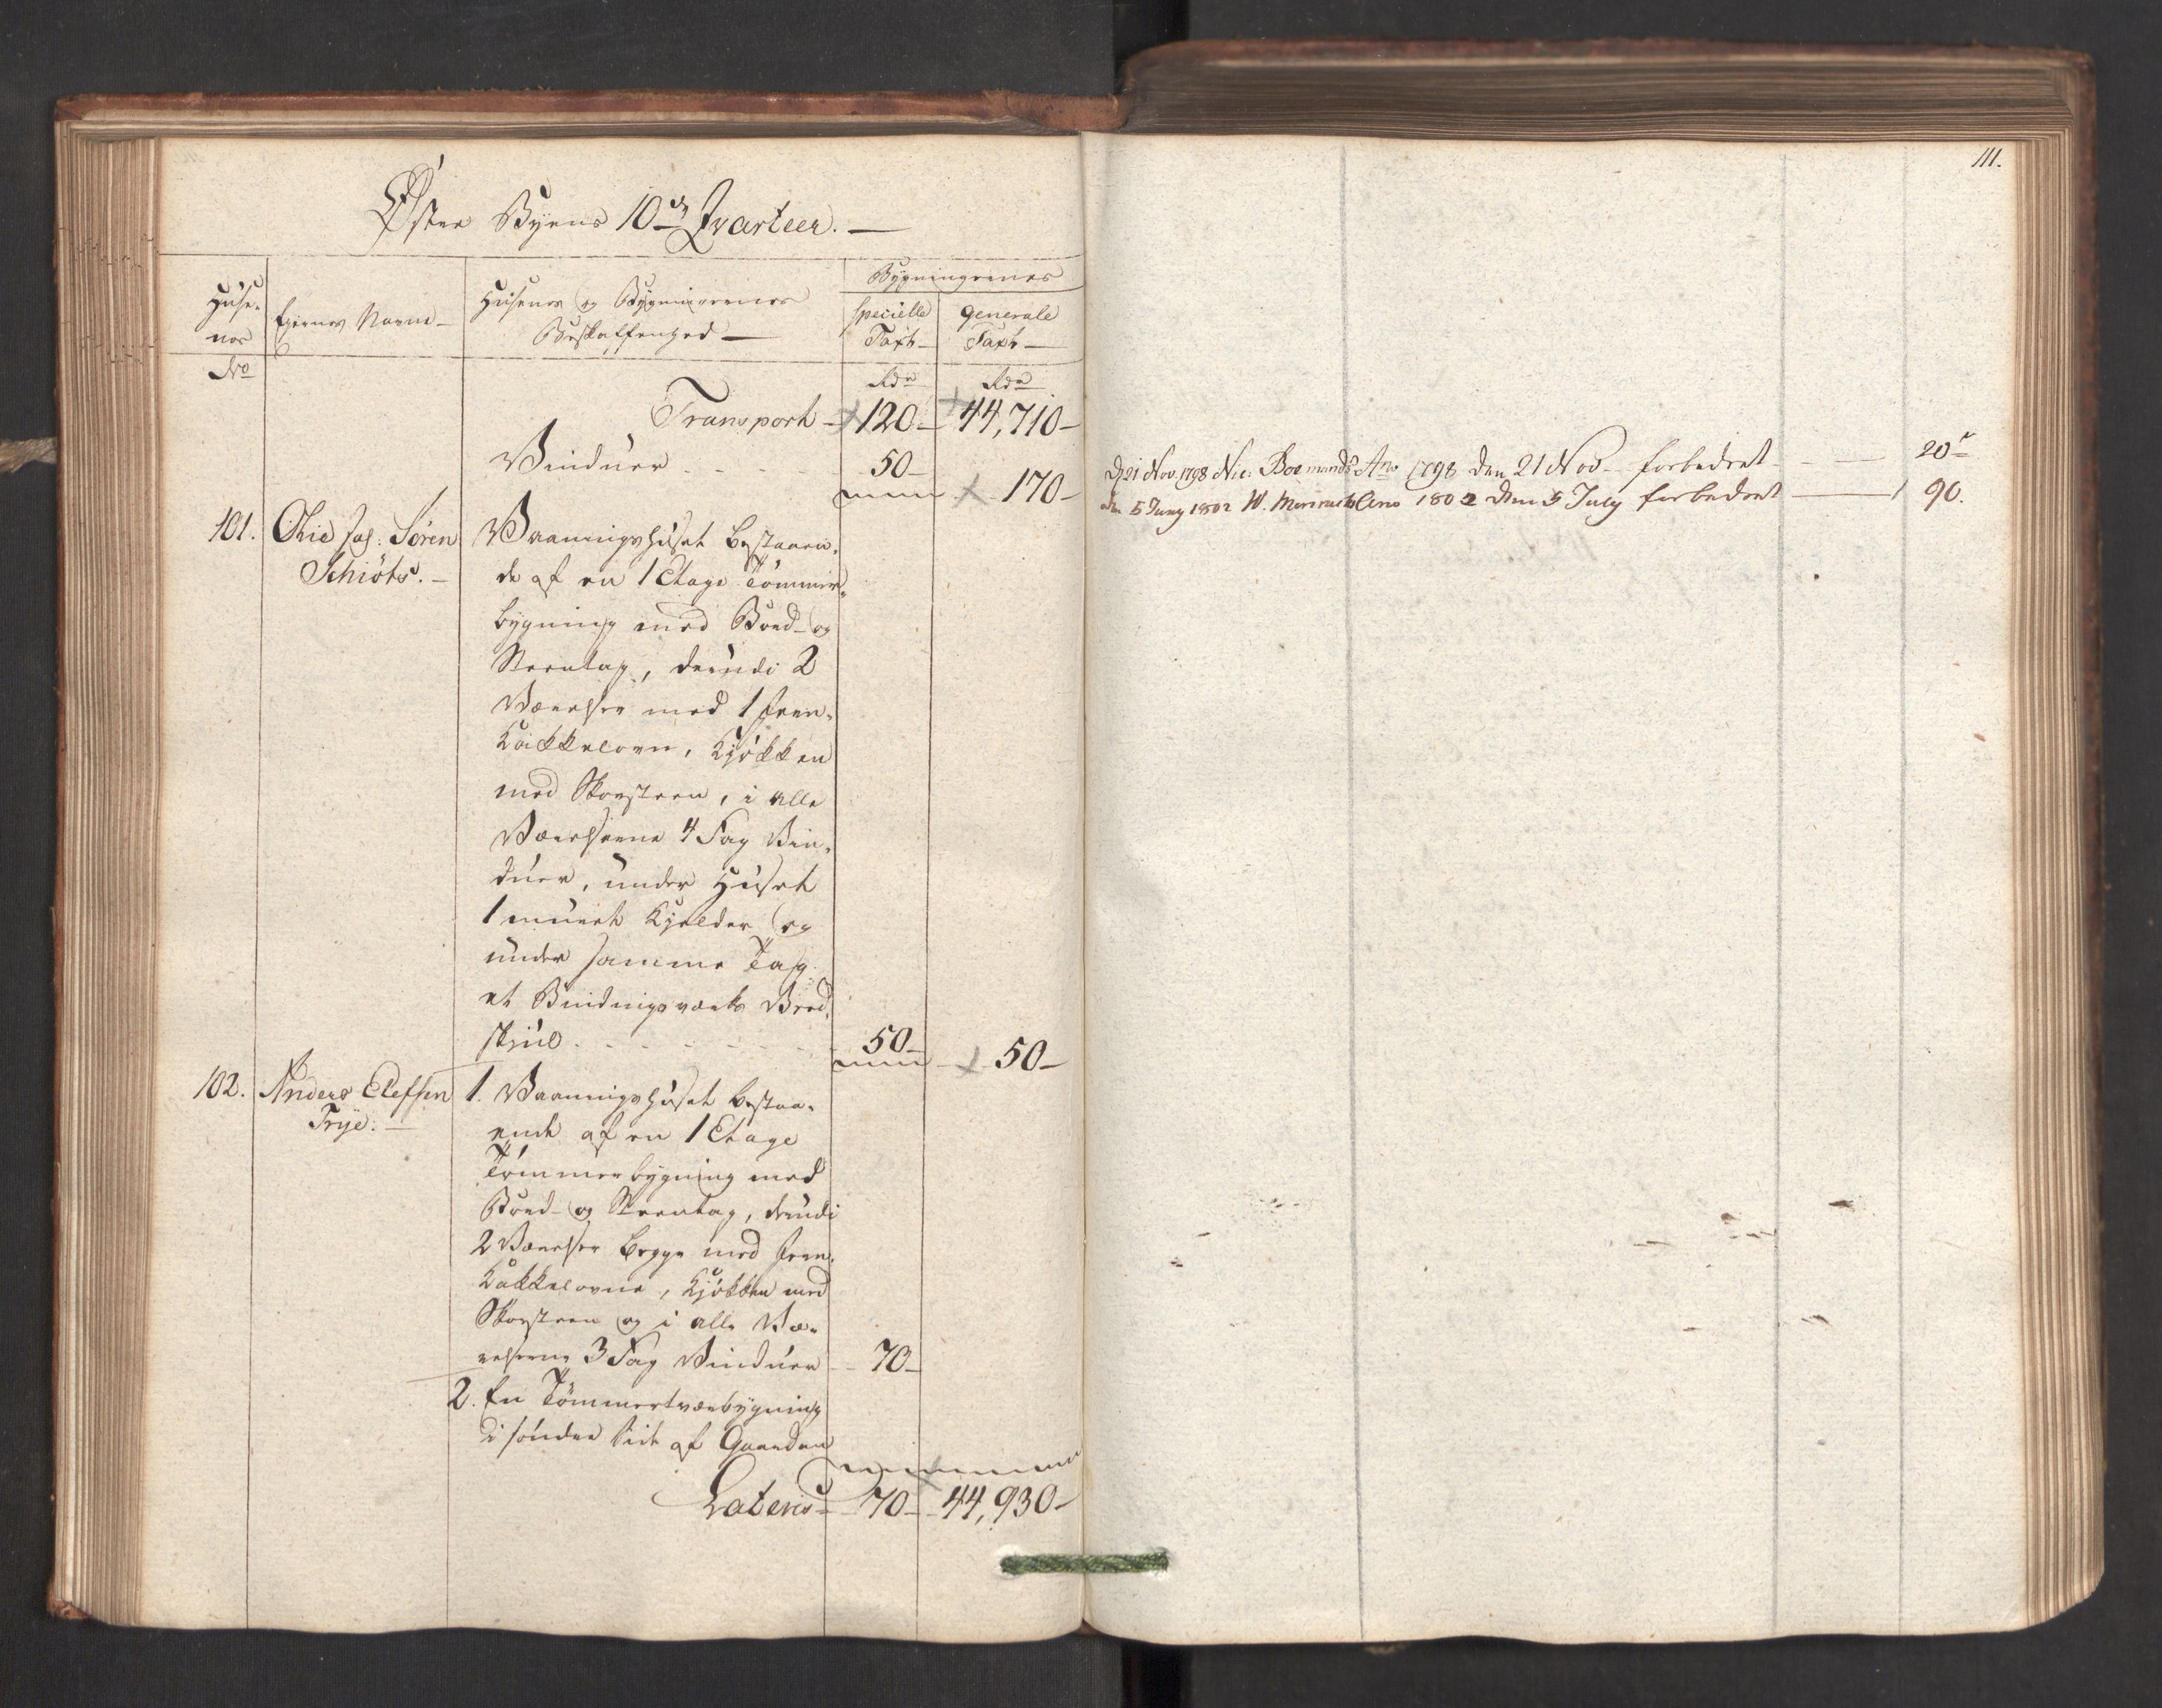 Øster Byens 10de Qvarteer. —
Huse-
nes
No
Eiernes Navne —
Husenes og Bygningernes
Beskaffenhed —
Bygningernes
specielle
Taxt —
generale
Taxt —
Rdr Rdr
Transport — 120 — 44,710 —
Vinduer . . . 50 — 170 —
101. Skiø Søren
Schiøts. —
Vaaningshuset bestaaen-
de af en 1 Etage Tømmer-
bygning med Bord- og
Steentag, derudi 2
Værelser med 1 Jern-
Kakkelovn, Kjøkken
med Skorsteen, i alle
Værelserne 4 Fag Vin-
duer, under Huset
1 muret Kjelder og
under samme Tag
et Bindingsværks Bred-
skiul . . . 50 — 50 —
102. Anders Elefsen
Trye. —
1. Vaaningshuset bestaa-
ende af en 1 Etage
Tømmerbygning med
Bord- og Steentag, derudi
2 Værelser begge med Jern-
Kakkelovne, Kjøkken med
Skorsteen og i alle Væ-
relserne 3 Fag Vinduer — 70 —
2. En Tømmertværbygning
i søndre Side af Gaarden
Lateris — 70 — 44,930 —
111.
D 21 Nov. 1798 Nic: Ano 1798 den 21 Nov — forbedret — 20r
den 5 Juny 1802 Ano 1802 den 5 July forbedret — 90.